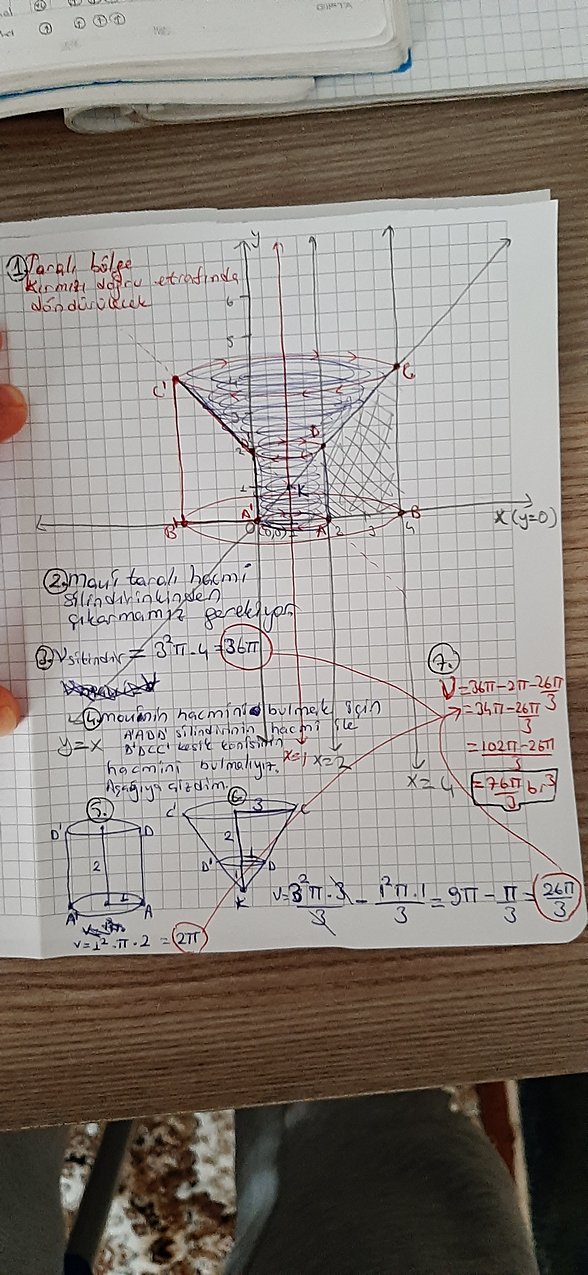 GIPTA
y
① Taralı bölge
kırmızı doğru etrafında
döndürülecek
6
5
C'
C
D
2
1
K
B'
A'
O
(0,0)
A
2
3
B
4
x (y=0)
② Mavi taralı hacmi
silindirinkinden
çıkarmamız gerekiyor.
③ Vsilindir = 3²π.4 = 36π
④ mavinin hacmini bulmak için
A'ADD' silindirinin hacmi ile
D'DCC' kesik konisinin
hacmini bulmalıyız.
Aşağıya çizdim.
y=x
x=1
x=2
x=4
⑦
V=36π-2π-26π/3
=34π-26π/3
=102π-26π/3
=76π/3 br³
⑤
D'
D
2
1
A'
A
V=1².π.2 = 2π
⑥
C'
3
C
2
D'
D
1
K
V=3²π.3/3 - 1²π.1/3 = 9π - π/3 = 26π/3